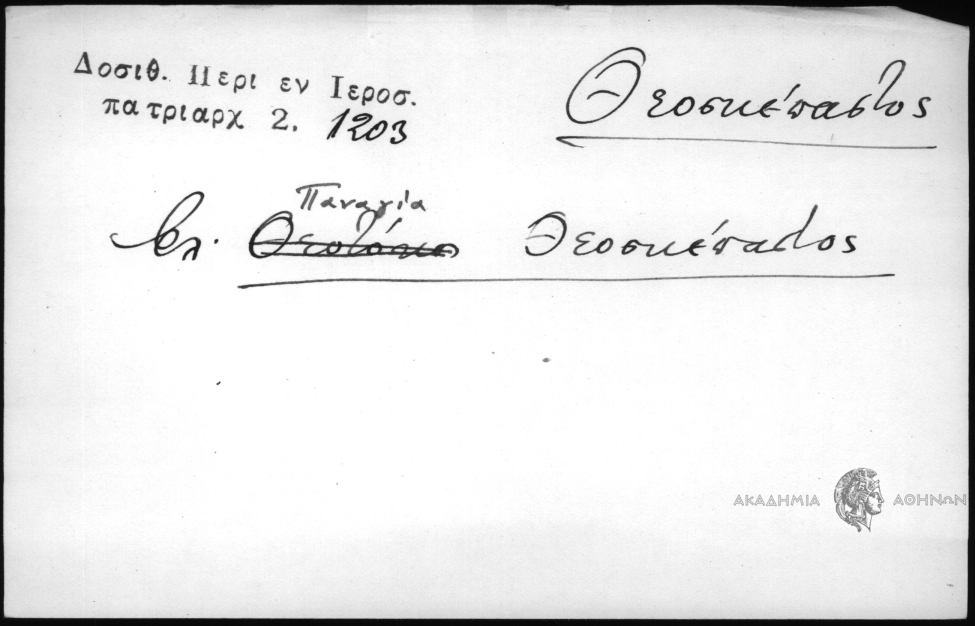 Δοσιθ. Περι εν Ιεροσ.
πατριαρχ 2. 1203
Θεοσκέπαστος
Παναγία
βλ. Θεοτόκο Θεοσκέπαστος
ΑΚΑΔΗΜΙΑ ΑΘΗΝΩΝ